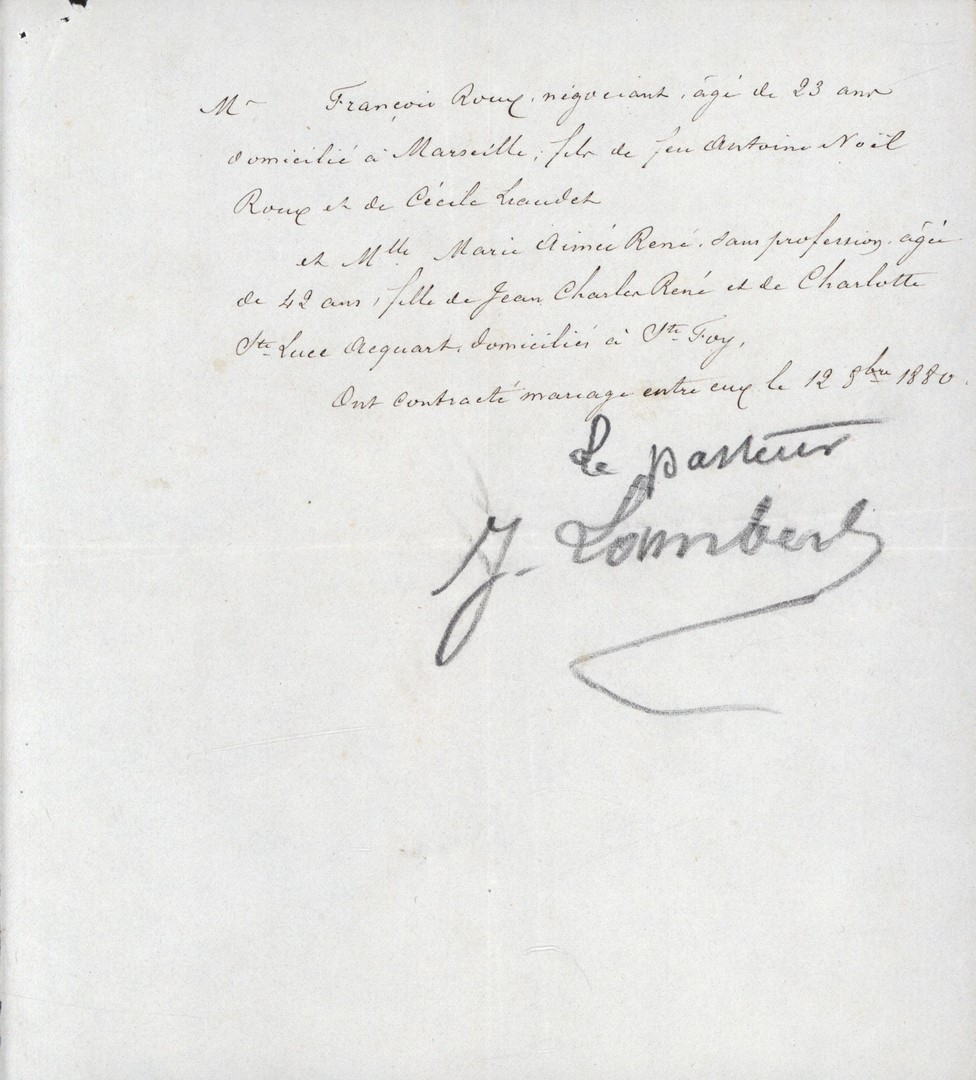 Mr François Roux, négociant, âgé de 23 ans
domicilié à Marseille, fils de feu Antoine Noël
Roux et de Cécile
et Mlle Marie Aimée René, sans profession, âgée
de 42 ans, fille de Jean Charles René et de Charlotte
Ste Luce Acquart, domiciliés à Ste Foy,
Ont contracté mariage entre eux le 12 bre 1880.
Le pasteur
J. Lambert